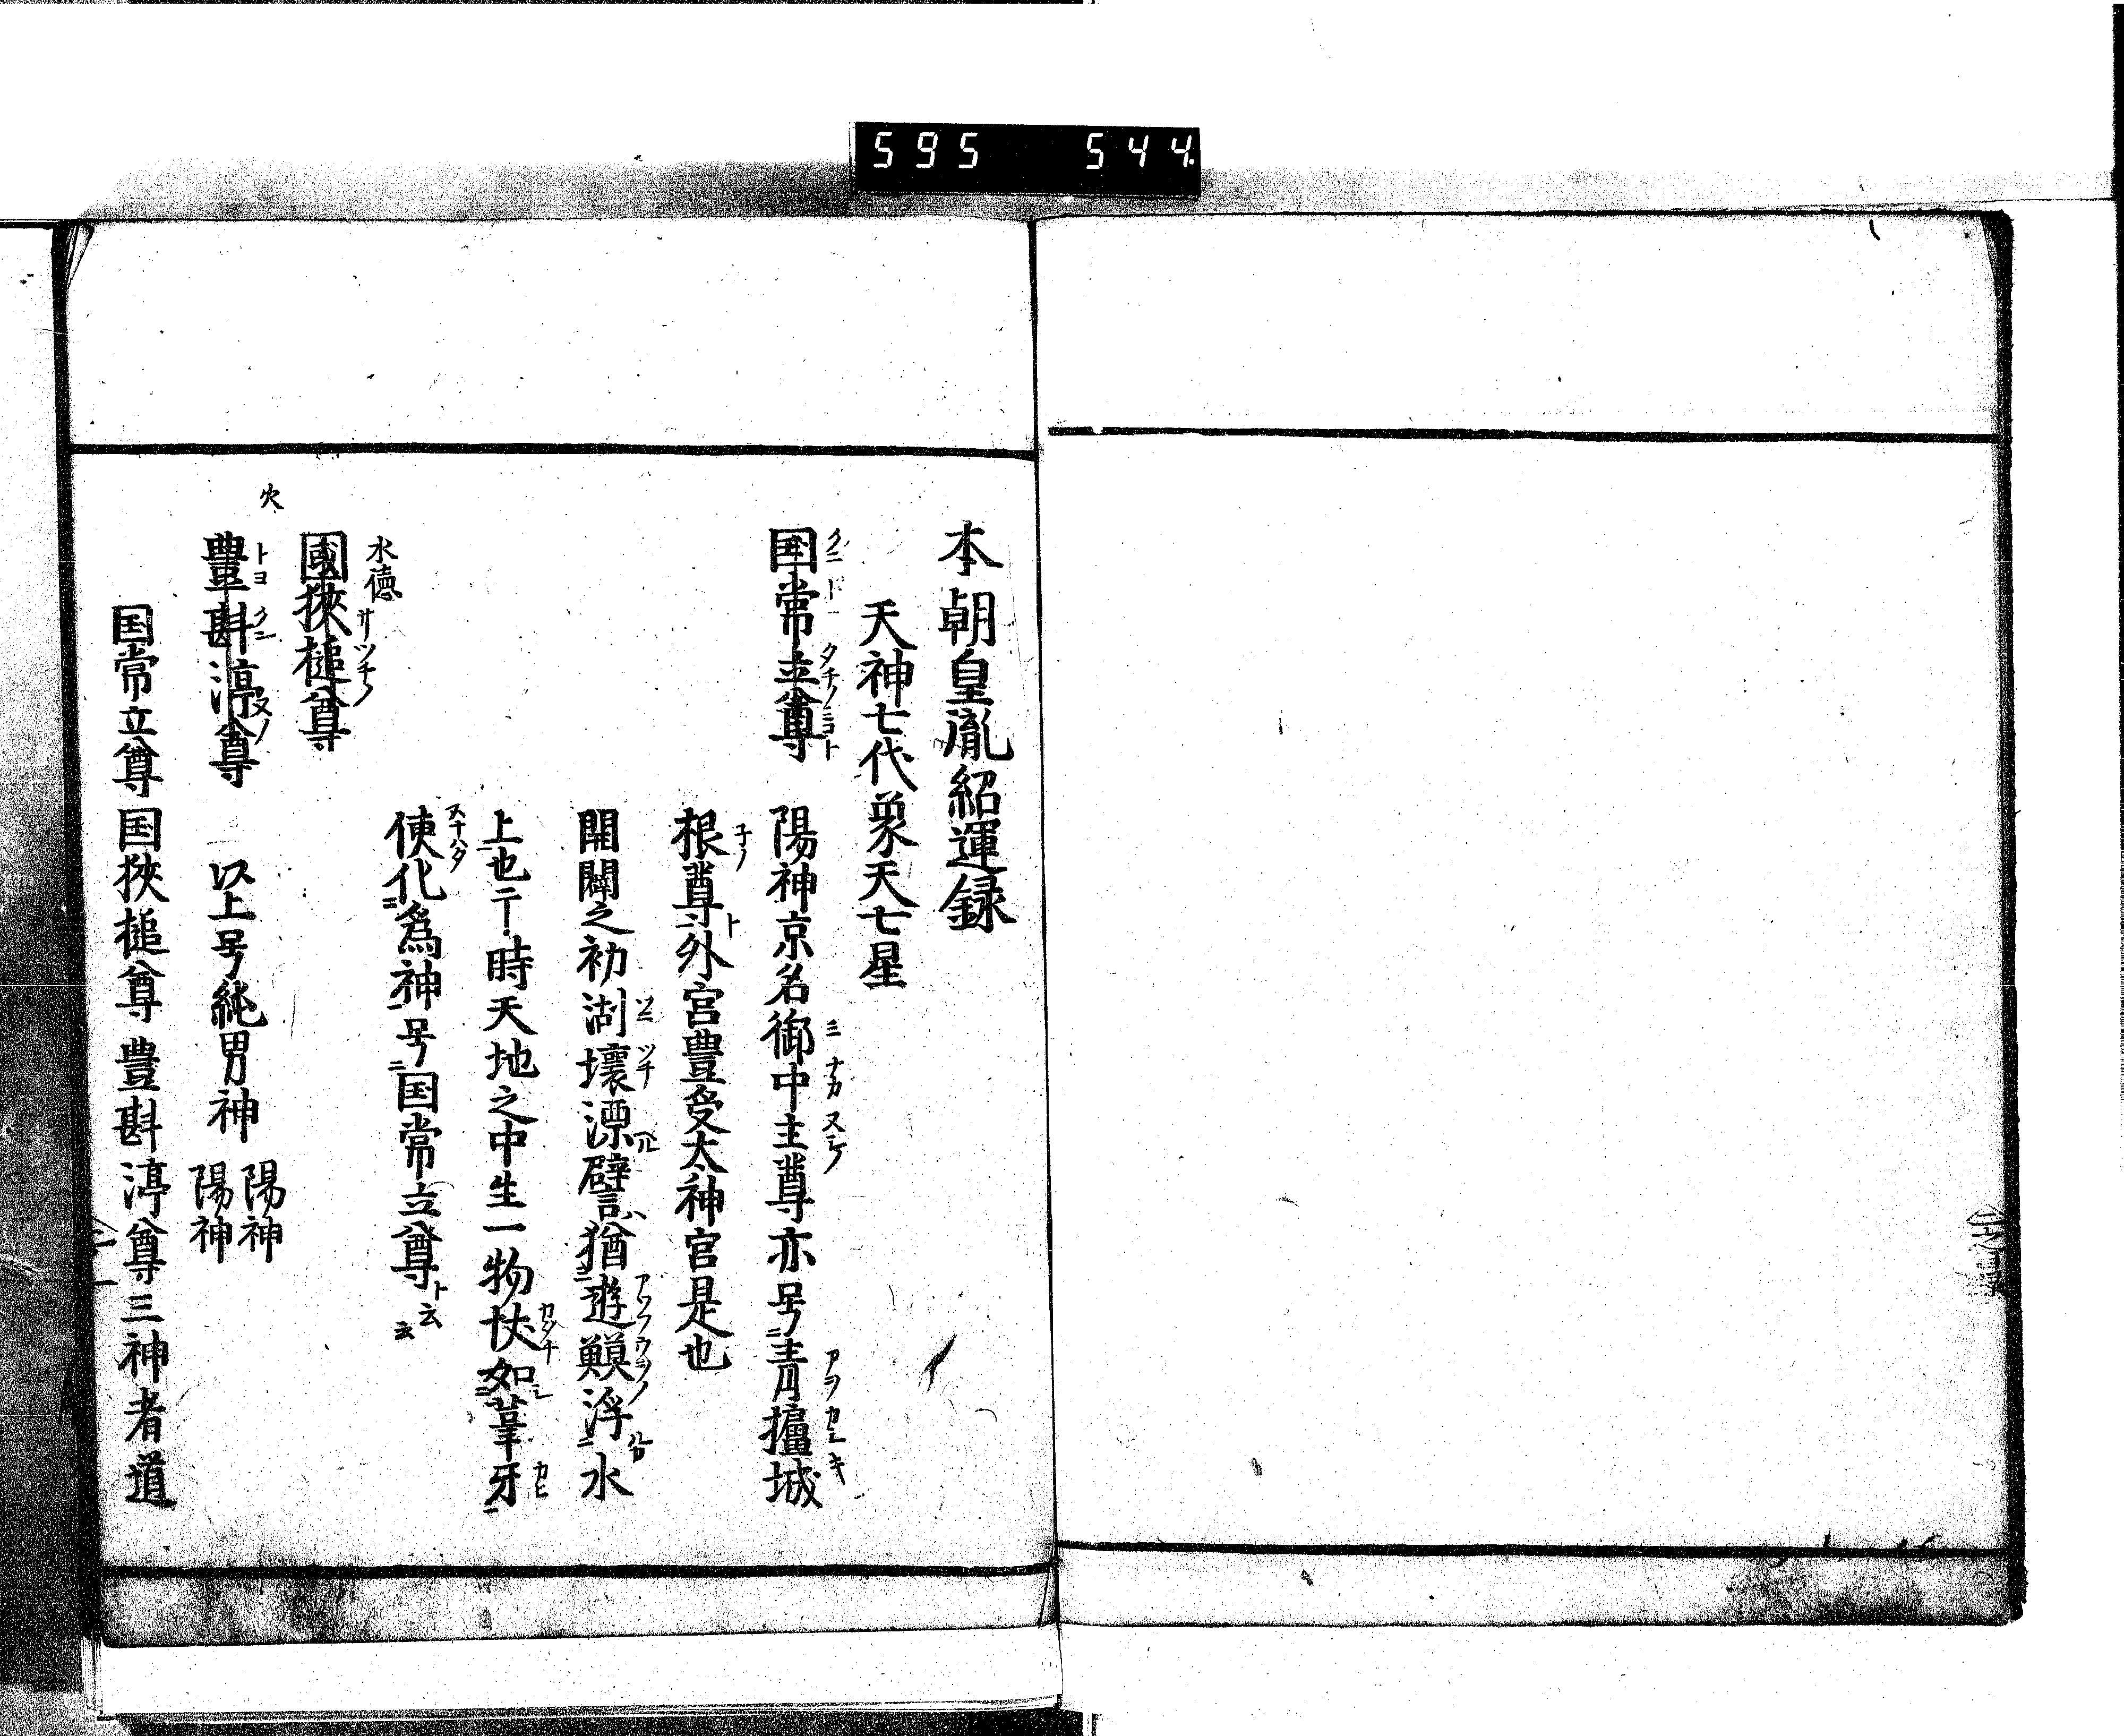 595 544
本朝皇胤紹運録
天神七代象天七星
国常立尊 陽神京名御中主尊亦号青攎城
根尊外宮豊受太神宮是也
開闢之初洲壌漂譬猶遊魚浮水
上也于時天地之中生一物状如葦牙
使化為神号国常立尊ト云云
水德
國狭槌尊
火
豊斟渟尊 以上号純男神 陽神 陽神
国常立尊国狭槌尊豊斟渟尊三神者道